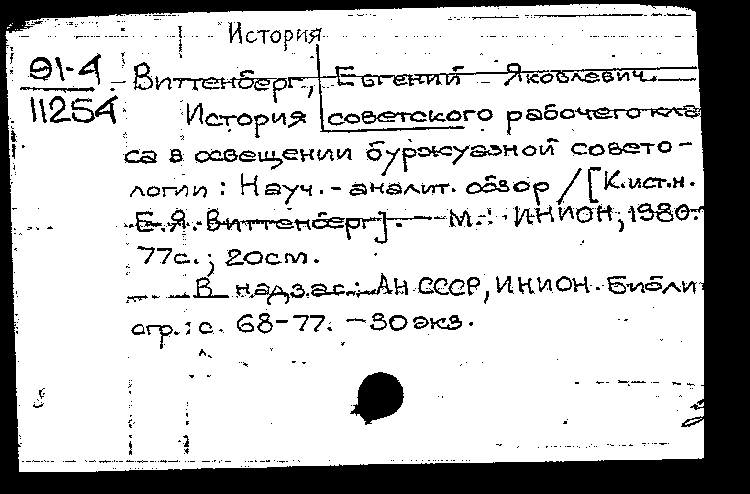 История
91-4
11254
Виттенберг, Евгений Яковлевич.
История советского рабочего клас
са в освещении буржуазной совето-
логии : Науч.-аналит. обзор / [К.ист.н.
Е.Я. Виттенберг]. — М.: ИНИОН, 1980.
77с.; 20см.
В надзаг.: АН СССР, ИНИОН. Библи
огр.: с. 68-77. — 30 экз.